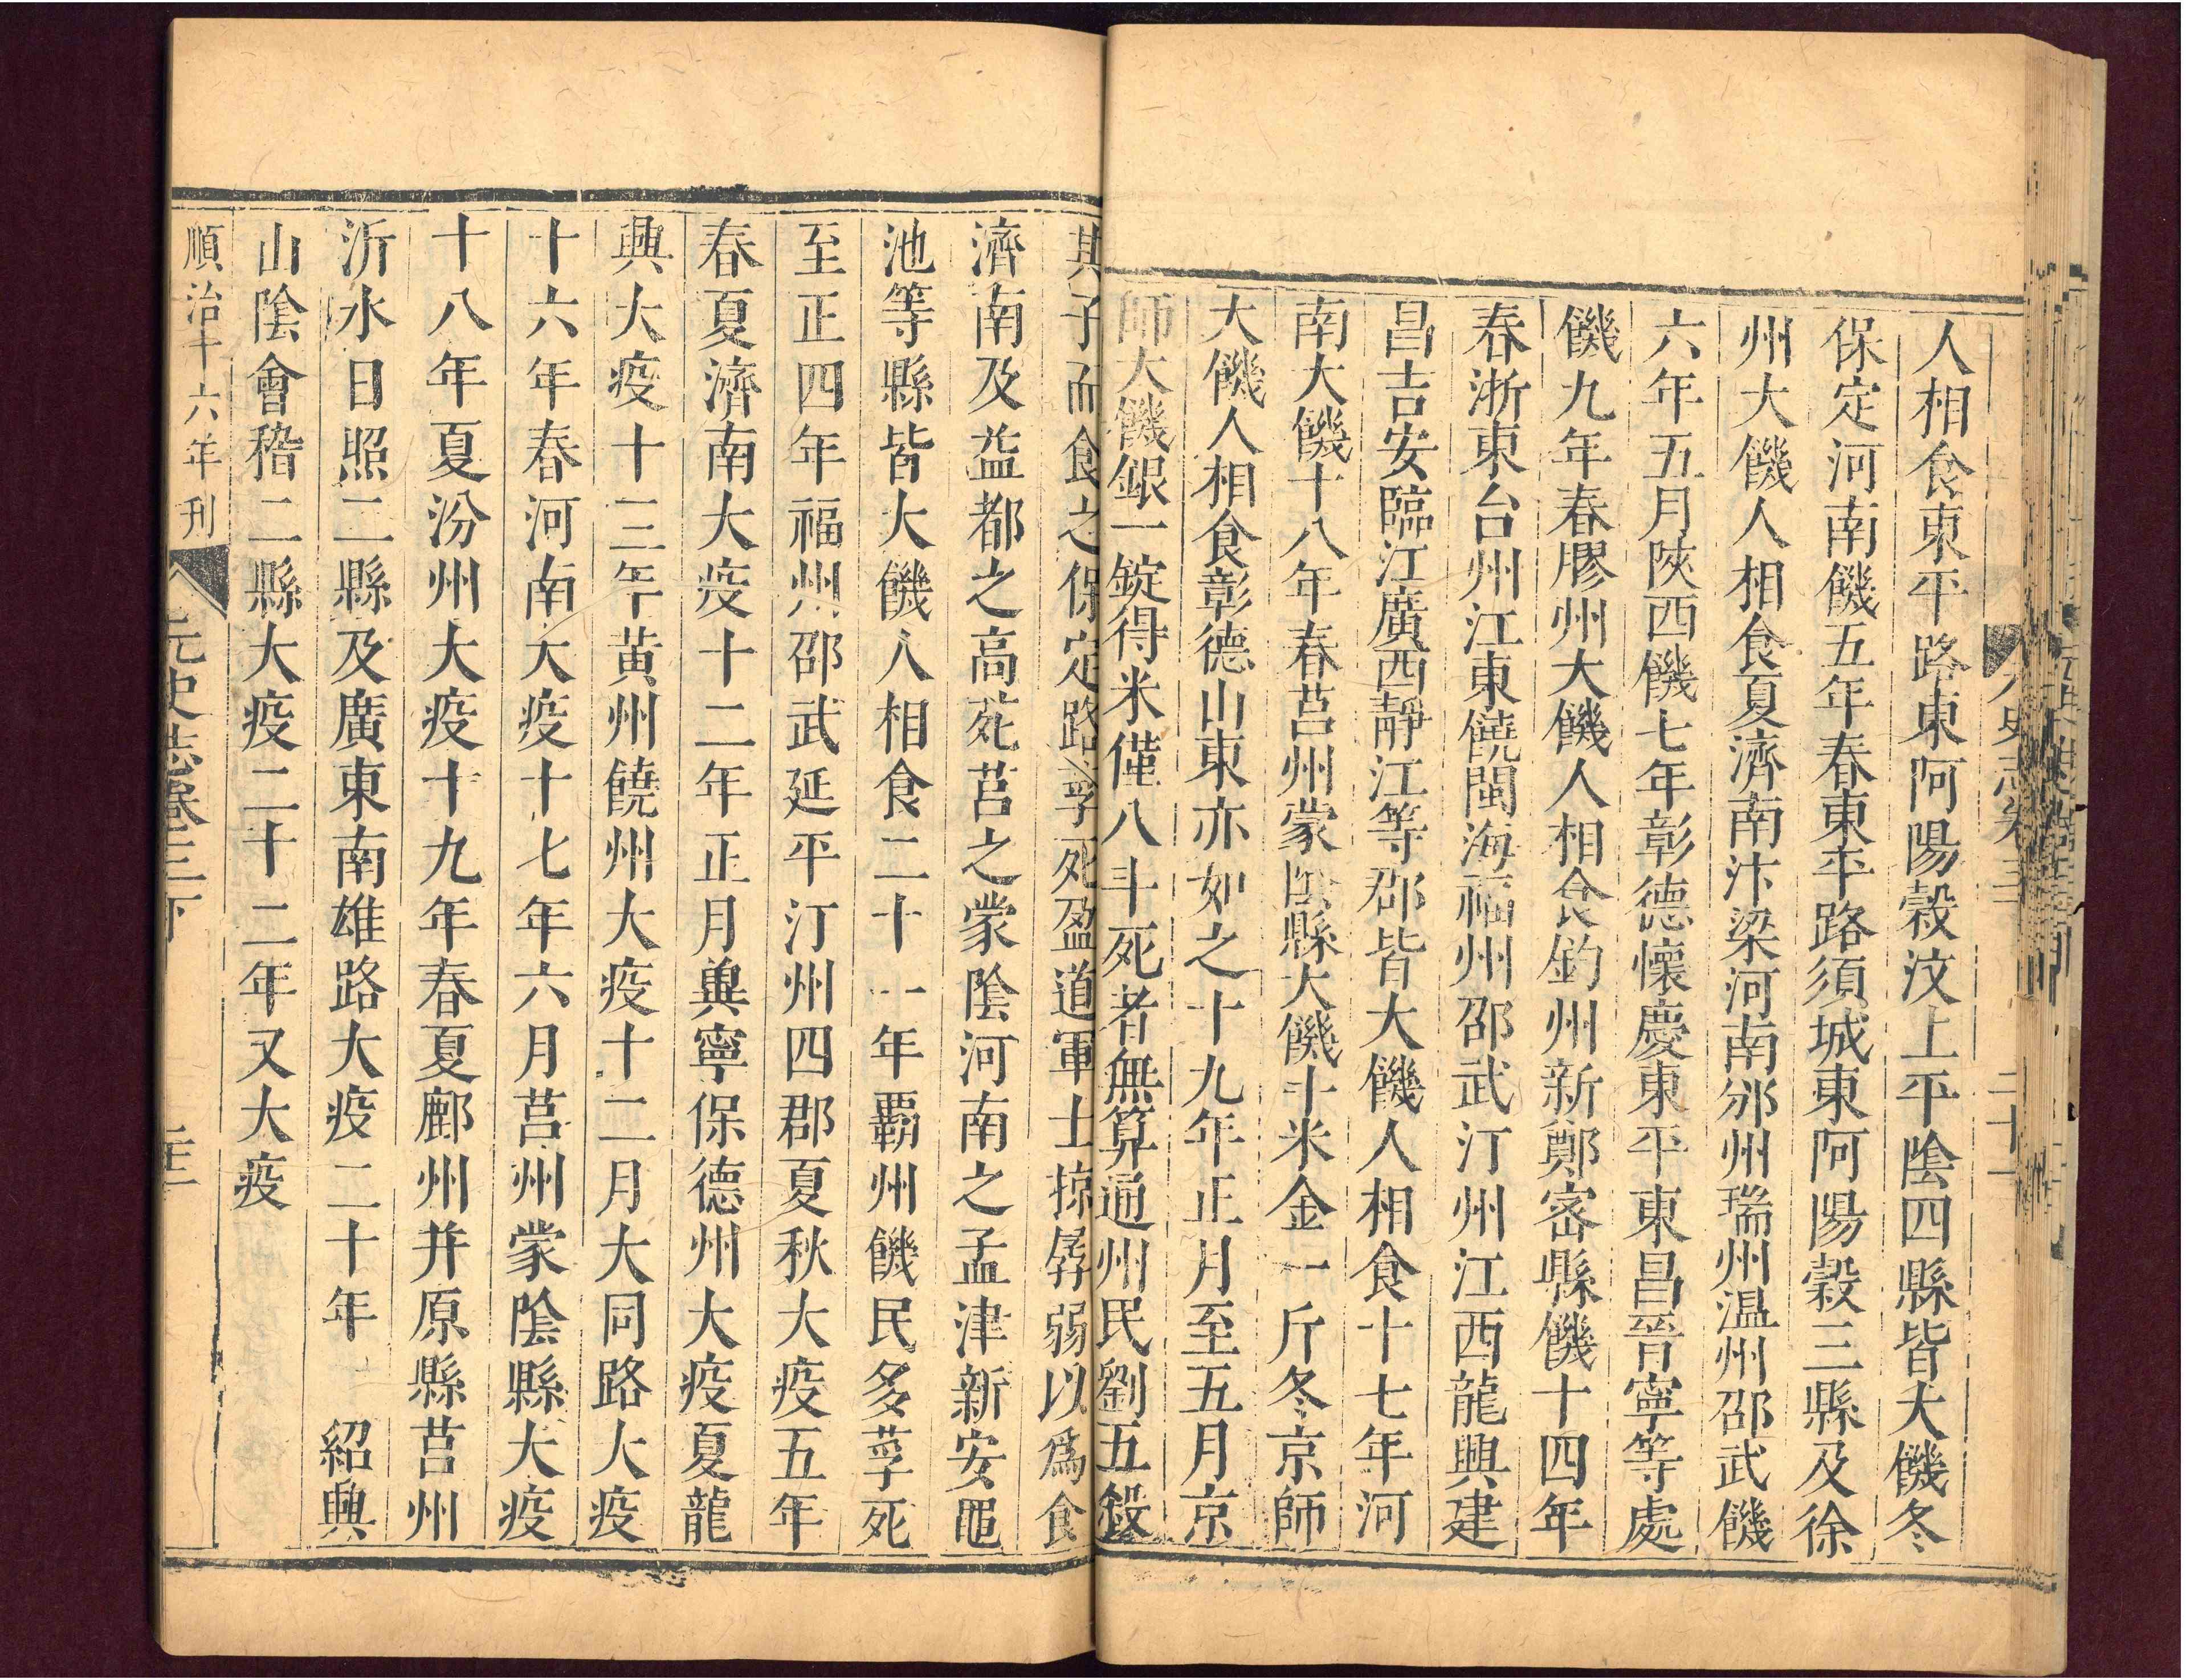 人相食東平路東阿陽穀汶上平陰四縣皆大饑冬
保定河南饑五年春東平路須城東阿陽穀三縣及徐
州大饑人相食夏濟南汴梁河南邠州瑞州温州邵武饑
六年五月陝西饑七年彰德懷慶東平東昌晉寧等處
饑九年春膠州大饑人相食鈞州新鄭密縣饑十四年
春浙東台州江東饒閩海福州邵武汀州江西龍興建
昌吉安臨江廣西靜江等郡皆大饑人相食十七年河
南大饑十八年春莒州蒙陰縣大饑斗米金一斤冬京師
大饑人相食彰德山東亦如之十九年正月至五月京
師大饑銀一錠得米僅八斗死者無算通州民劉五殺
其子而食之保定路莩死盈道軍士掠孱弱以爲食
濟南及益都之高苑莒之蒙陰河南之孟津新安黽
池等縣皆大饑人相食二十一年霸州饑民多莩死
至正四年福州邵武延平汀州四郡夏秋大疫五年
春夏濟南大疫十二年正月兾寧保德州大疫夏龍
興大疫十三年黃州饒州大疫十二月大同路大疫
十六年春河南大疫十七年六月莒州蒙陰縣大疫
十八年夏汾州大疫十九年春夏鄜州并原縣莒州
沂水日照二縣及廣東南雄路大疫二十年 紹興
山陰會稽二縣大疫二十二年又大疫
順治十六年刊
元史志卷三下